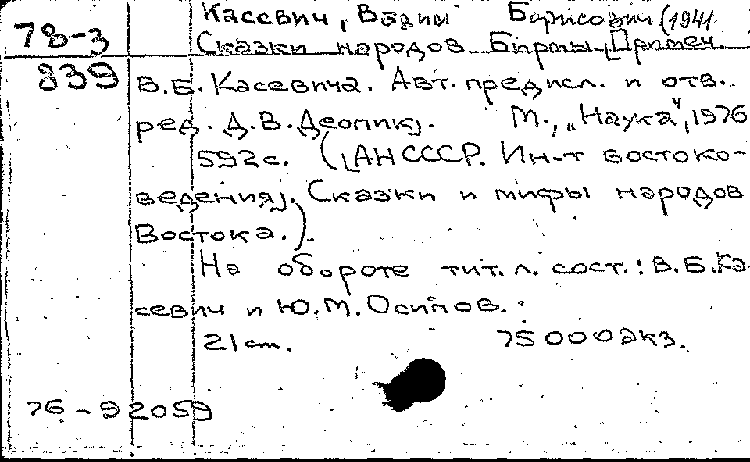 78-3
839
Касевич, Вадим Борисович (1941
Сказки народов Бирмы. [Примеч.
В.Б. Касевича. Авт. предисл. и отв.
ред. Д.В. Деопик]. М., „Наука", 1976
592 с. ([АН СССР. Ин-т востоко-
ведения]. Сказки и мифы народов
Востока.).
На обороте тит. л. сост.: В.Б. Ка-
севич и Ю.М. Осипов.
21 см. 75000 экз.
76-92059